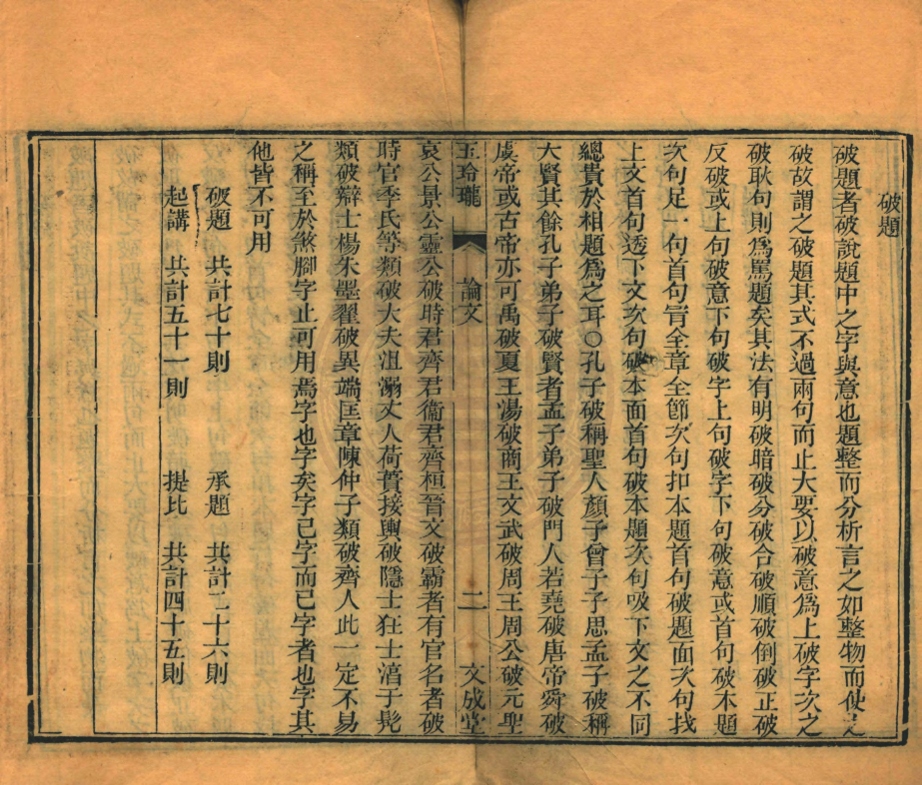 破題
破題者破說題中之字與意也題整而分析言之如整物而使之
破故謂之破題其式不過兩句而止大要以破意爲上破字次之
破耿句則爲罵題矣其法有明破暗破分破合破順破倒破正破
反破或上句破意下句破字上句破字下句破意或首句破本題
次句足一句首句冐全章全節次句扣本題首句破題面次句找
上文首句透下文次句破本面首句破本題次句吸下文之不同
總貴於相題爲之耳○孔子破稱聖人顏子曾子子思孟子破稱
大賢其餘孔子弟子破賢者孟子弟子破門人若堯破唐帝舜破
虞帝或古帝亦可禹破夏王湯破商王文武破周王周公破元聖
玉玲瓏 論文 二 文成堂
哀公景公靈公破時君齊君衞君齊桓晉文破霸者有官名者破
時官季氏等類破大夫沮溺丈人荷蕢接輿破隱士狂士淳于髡
類破辯士楊朱墨翟破異端匡章陳仲子類破齊人此一定不易
之稱至於煞腳字止可用焉字也字矣字已字而已字者也字其
他皆不可用
破題 共計七十則 承題 共計二十六則
起講 共計五十一則 提比 共計四十五則